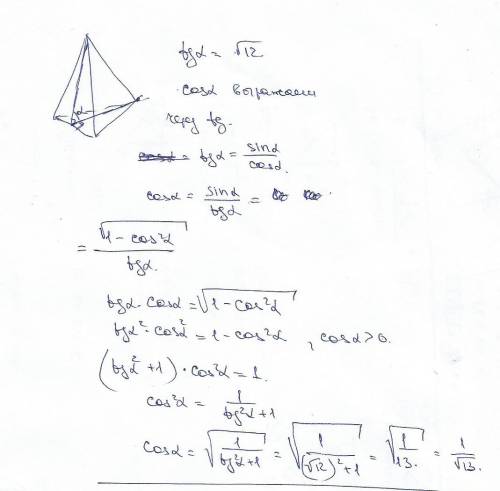 α
tgα = √12
cosα выражаем
через tg.
tgα = sinα/cosα.
cosα = sinα/tgα =
= √(1 - cos²α)/tgα.
tgα · cosα = √(1 - cos²α)
tgα² · cos²α = 1 - cos²α , cosα > 0.
(tgα² + 1) · cos²α = 1.
cos²α = 1/(tg²α + 1)
cosα = √(1/(tg²α + 1)) = √(1/((√12)² + 1)) = √(1/13.) = 1/√13.